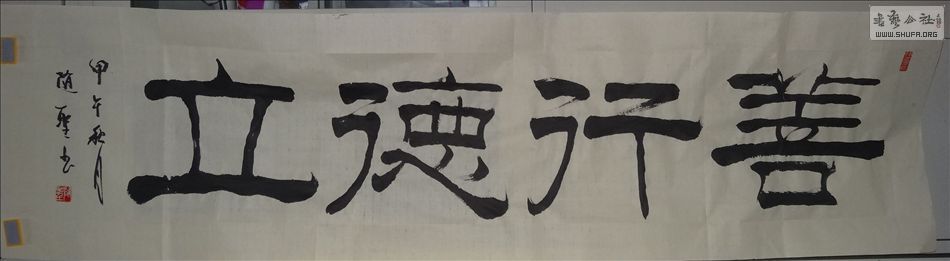 善行德立
甲午秋月
随聖书
書藝公社
WWW.SHUFA.ORG